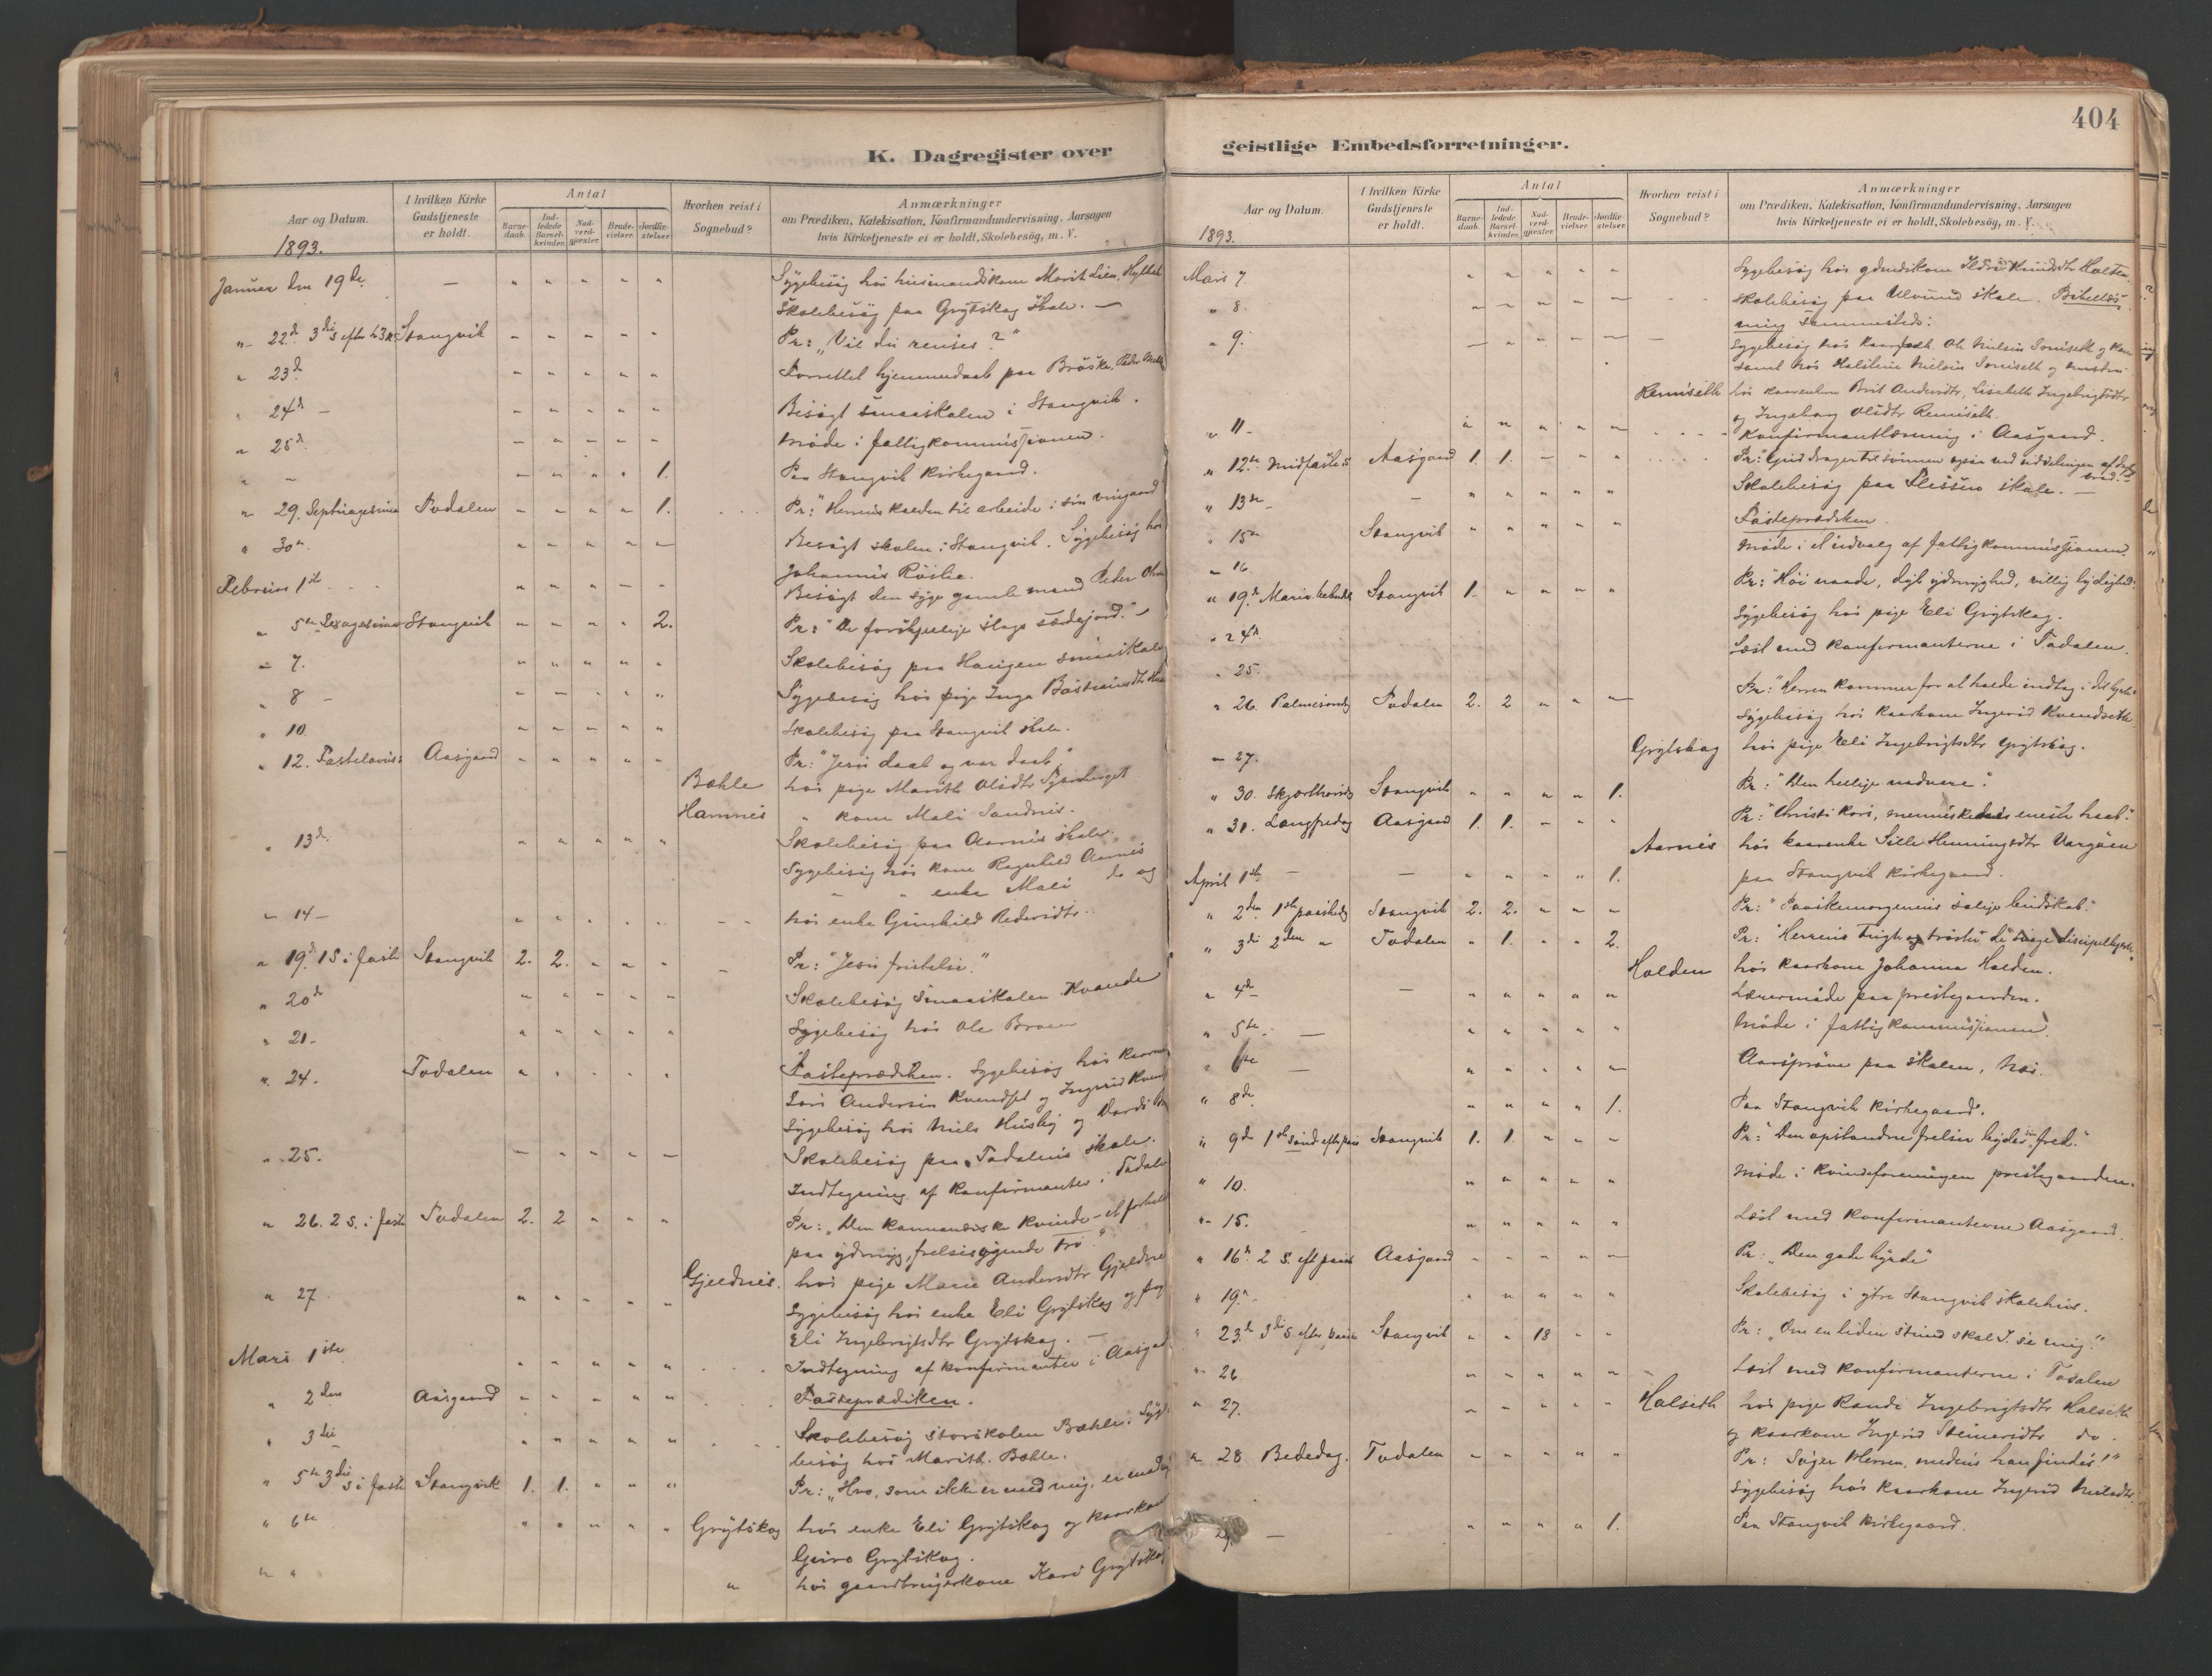 K. Dagregister over
Aar og Datum.
I hvilken Kirke Gudstjeneste er holdt.
Antal
Barnedaab.
Indledede Barselkvinder.
Nadverdgjester.
Brudevielser.
Jordfæstelser.
Hvorhen reist i Sognebud?
Anmærkninger
om Prædiken, Katekisation, Konfirmandundervisning. Aarsagen
hvis Kirketjeneste ei er holdt, Skolebesøg, m. V.
1893.
Januar den 19de — " " " " " Sygebesøg hos husmandskone Marit Lien,
Skolebesøg paa Grytskog Skole. —
" 22d 3di S efter h3k Stangvik - - - - - Pr: "Vil du renses?"
" 23d " " " " " Forrettet hjemmedaab paa Brøske, Peder
" 24d - - - - - - Besøgt smaaskolen i Stangvik.
" 25d - - - - - Møde i fattigkommissionen.
" - - " " " 1. Paa Stangvik Kirkegaard.
" 29. Septuagesima Todalen - - " " 1. Pr: "Herrens kalden til arbeide i sin vingaard"
" 30te " " " " - Besøgt skolen i Stangvik. Sygebesøg hos
Johannes Røske.
Februar 1ste " " " - " Besøgt den syge gamle mand Peder
" 5te Sexagesima Stangvik " " " " 2. Pr: "De forskjellige slags sædejord." -
" 7. " " " " " Skolebesøg paa Haugen smaaskole
" 8 - " - " " " Sygebesøg hos pige Inga Bastiansdtr
" 10. " " " " " Skolebesøg paa Stangvik skole.
" 12. Fastelavns s Aasgaard - - - - - Pr: "Jesu daab og vor daab"
Bæhle hos pige Marith Olsdtr
Hamnes " kone Mali Sandnes.
" 13de " " " " " Skolebesøg paa Aarnes skole.
Sygebesøg hos kone Ragnhild Aarnes
- " enke Mali do og
" 14 - " " " " " - - hos enke Gunhild Pedersdtr.
" 19d. 1 S i faste Stangvik 2. 2. " " " Pr: "Jesu fristelse."
" 20de " " " " " Skolebesøg smaaskolen Kvande
" 21 - " " " " " Sygebesøg hos Ole Broen
" 24. Todalen " " " " " Fasteprædiken. Sygebesøg hos
Lars Andersen Kvendset og Ingerid
Sygebesøg hos Niels Husby og
" 25. - " " " - Skolebesøg paa Todalens skole.
Indtegning af Konfirmanter i Todalen
" 26. 2 S. i faste Todalen 2. 2 " " " Pr: "Den kannanæiske Kvinde - et
paa ydmyg, frelsesøgende tro."
" 27 " " " " " Gjeldnes. hos pige Marie Andersdtr Gjeldnes
Sygebesøg hos enke Eli Grytskog og pige
Eli Ingebrigtsdtr Grytskog. —
Mars 1ste " " " " " Indtegning af konfirmanter i
" 2den Aasgaard - - - " " Fasteprædiken.
" 3die " " " " " Skolebesøg storskolen Bæhle.
besøg hos Marith. Bæhle.
" 5te 3die S i faste Stangvik 1. 1. " " " Pr: "Hvo, som ikke er med mig, er
" 6te " " " " " Grytskog hos enke Eli Grytskog og
Guro Grytskog.
" " " hos gaardbrugerkone Kari Grytskog

404
geistlige Embedsforretninger.
Aar og Datum.
I hvilken Kirke Gudstjeneste er holdt.
Antal
Barnedaab.
Indledede Barselkvinder.
Nadverdgjester.
Brudevielser.
Jordfæstelser.
Hvorhen reist i Sognebud?
Anmærkninger
om Prædiken, Katekisation, Konfirmandundervisning. Aarsagen
hvis Kirketjeneste ei er holdt, Skolebesøg, m. V.
1893.
Mars 7. " " " " " Sygebesøg hos
" 8. - - - - - Skolebesøg paa Ulvund skole. Bibellæs-
ning sammesteds.
" 9. - " " " - Sygebesøg hos
samt hos Halstein Nielsen
Romiseth hos Brit Andersdtr, Lisabeth Ingebrigtsdtr
og Ingeborg Olsdtr
" 11 - " " " " - Konfirmantlæsning i Aasgaard.
" 12te Midfaste S Aasgaard 1. 1. - " " Pr: "Gud drager til sønnen
" 13de - - " " " " " Skolebesøg paa skole. —
" 15de Stangvik " " " " " Fasteprædiken.
" 16. Møde i et udvalg af fattigkommissionen.
" 19d Mariæ bebud. Stangvik 1. " " " " Pr: "Høi naade, dyb ydmyghed, villig lydighed.
" 24d. Sygebesøg hos pige Eli Grytskog.
" 25. Læst med konfirmanterne i Todalen.
" 26. Palmesøndag Todalen 2. 2 " " - Pr: "Herren kommer for at holde indtog i
Sygebesøg hos kaarkone Ingerid Kvendseth
" 27. Grytskog hos pige Eli Ingebrigtsdtr Grytskog.
" 30. Skjærthorsdg Stangvik " " " " 1. Pr: "Den hellige nadvere."
" 31. Langfredag Aasgaard 1. 1. - " " Pr: "Christi kors, menneskehedens eneste haab."
Aarnes hos kaarenke Sille Henningsdtr
April 1ste - - " " " " 1. paa Stangvik Kirkegaard.
" 2den 1ste paaskedg Stangvik 2. 2. " " - Pr: "Paaskemorgenens salige budskab."
" 3die 2den " Todalen " 1. " " 2. Pr: "Herrens
Halden hos kaarkone Johanna Halden.
" 4de - " " " " " Lærermøde paa prestegaarden.
" 5te - — " " " " " Møde i fattigkommissionen.
" 6te — " " " " - Aarsprøve paa skolen,
" 8de " " " " 1. Paa Stangvik Kirkegaard.
" 9de 1ste Sønd efter paas Stangvik 1. 1. " " - Pr: "Den opstandne frelser fred."
" 10. " " " " " Møde i kvindeforeningen prestegaarden.
" 15. " " " " " Læst med konfirmanterne Aasgaard.
" 16d. 2 S. eft paas Aasgaard - - - - - Pr: "Den gode hyrde"
" 19. - " " " " " Skolebesøg i ytre Stangvik skolehus.
" 23.de 3die S. efter paaske Stangvik " " 18 " " Pr: "Om en liden stund skal I se mig."
" 26. " " " " " Læst med konfirmanterne i Todalen
" 27. " " " " " Halseth hos pige Randi Ingebrigtsdtr Halseth
og kaarkone Ingerid Steinersdtr do.
" 28. Bededag. Todalen - - " " " Pr: Søger Herren, medens han findes!"
Sygebesøg hos kaarkone Ingerid
— " " " " 1. Paa Stangvik kirkegaard.